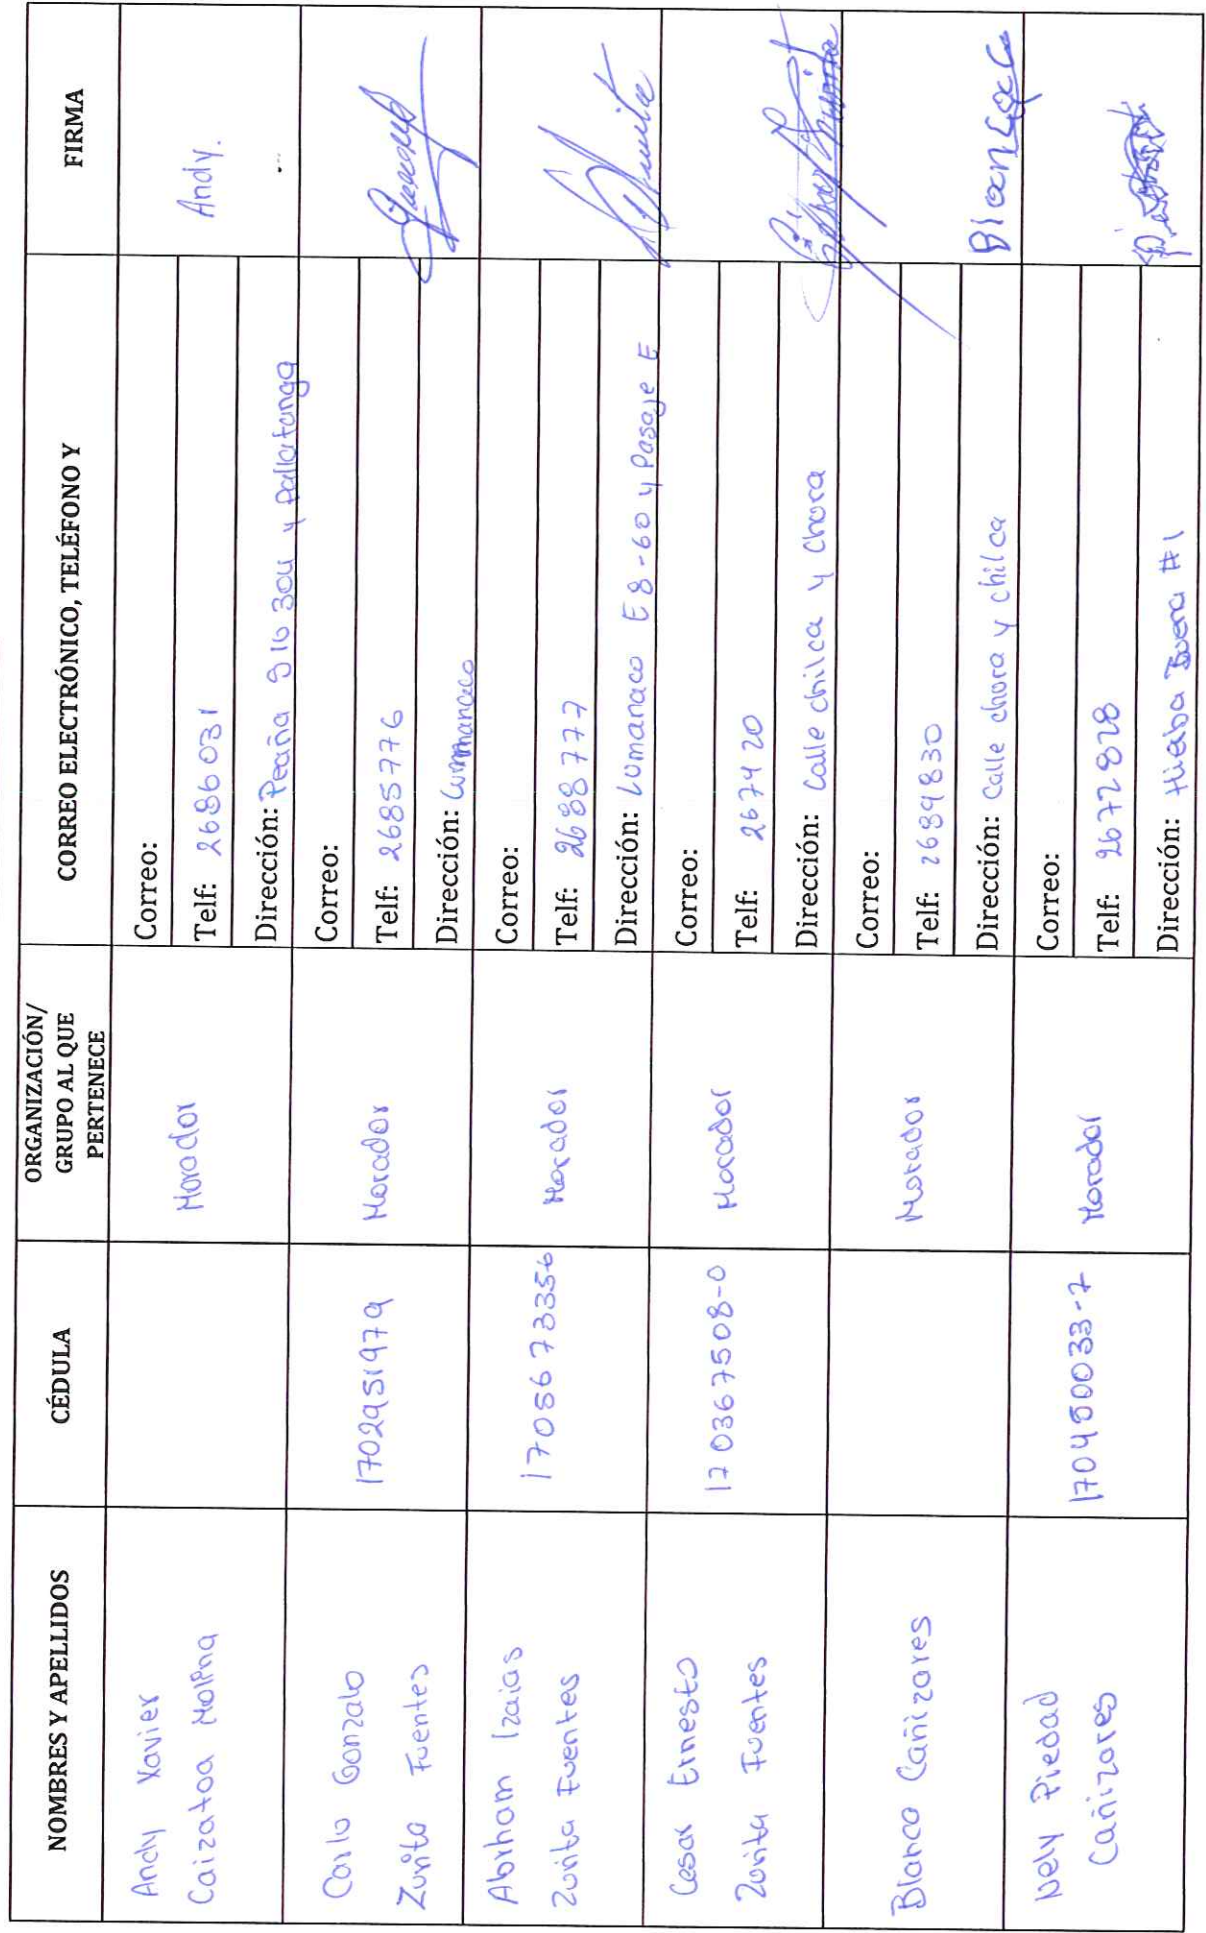 NOMBRES Y APELLIDOS
CÉDULA
ORGANIZACIÓN/
GRUPO AL QUE
PERTENECE
CORREO ELECTRÓNICO, TELÉFONO Y
FIRMA
Andy Xavier
Caizatoa Molina
Morador
Correo:
Telf: 2686031
Dirección: S16 304 y Pallatanga
Andy.
Carlo Gonzalo
Zurita Fuentes
1702951979
Morador
Correo:
Telf: 2685776
Dirección: Lumanaco
Abrham Izaias
Zurita Fuentes
1705673356
Morador
Correo:
Telf: 2688777
Dirección: Lumanaco E8-60 y Pasaje E
Cesar Ernesto
Zurita Fuentes
170367508-0
Morador
Correo:
Telf: 267420
Dirección: Calle chilca y Chora
Blanca Cañizares
Morador
Correo:
Telf: 2689830
Dirección: Calle chora y chilca
Blanca C
Nely Piedad
Cañizares
170450033-7
Morador
Correo:
Telf: 2672828
Dirección: Hieba Buena #1